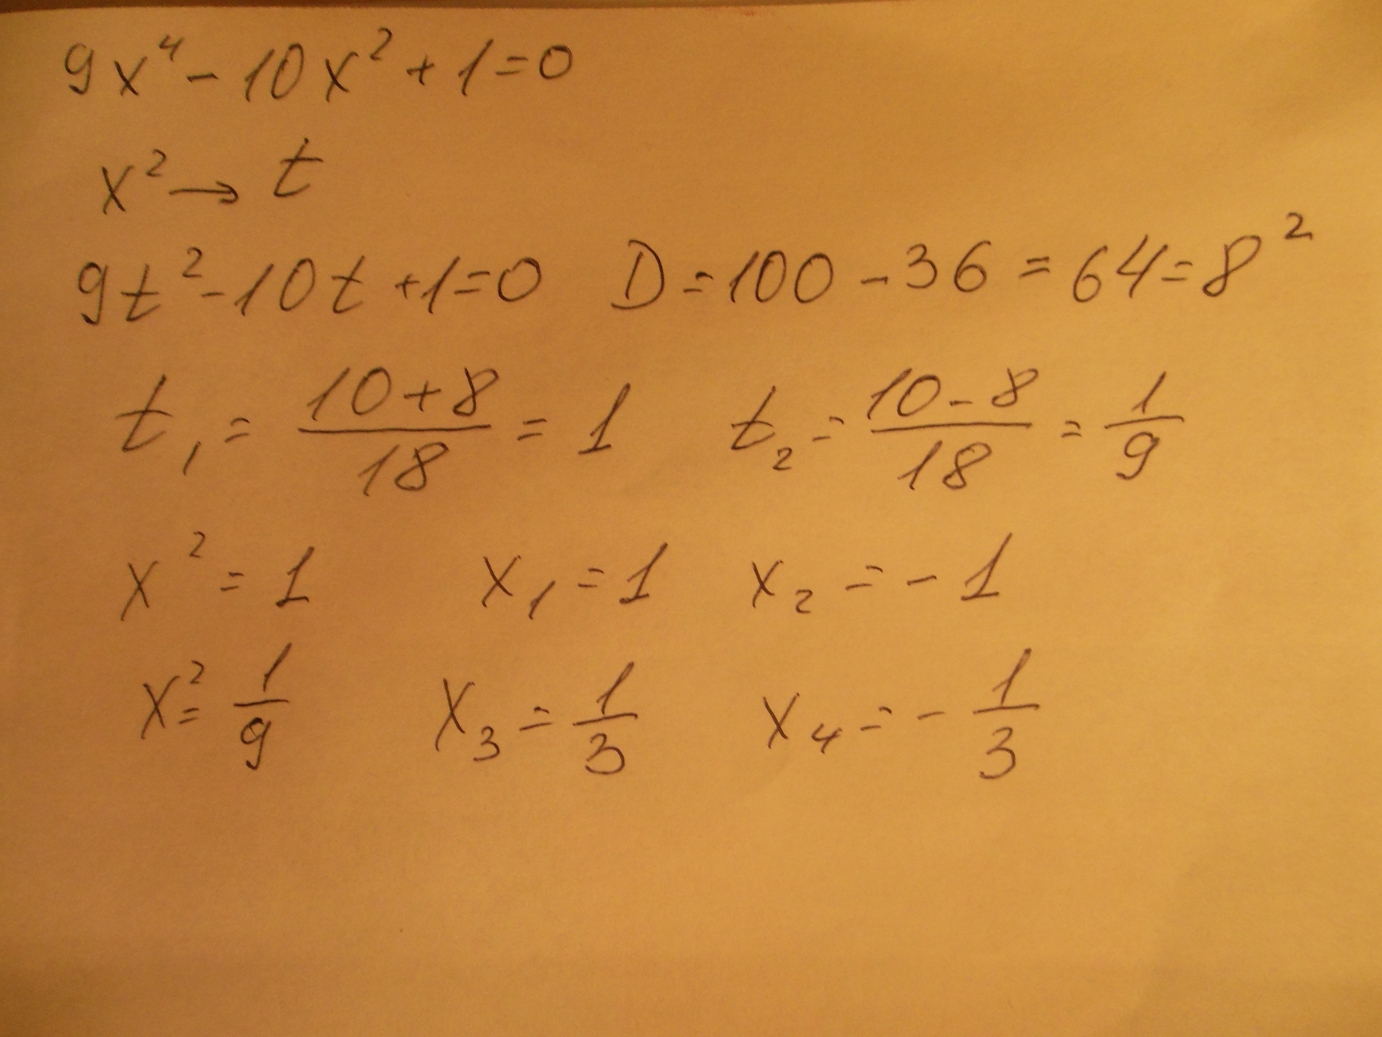 9x⁴ - 10x² + 1 = 0
x² → t
9t² - 10t + 1 = 0 D = 100 - 36 = 64 = 8²
t₁ = (10 + 8)/18 = 1 t₂ = (10 - 8)/18 = 1/9
x² = 1 x₁ = 1 x₂ = -1
x² = 1/9 x₃ = 1/3 x₄ = -1/3